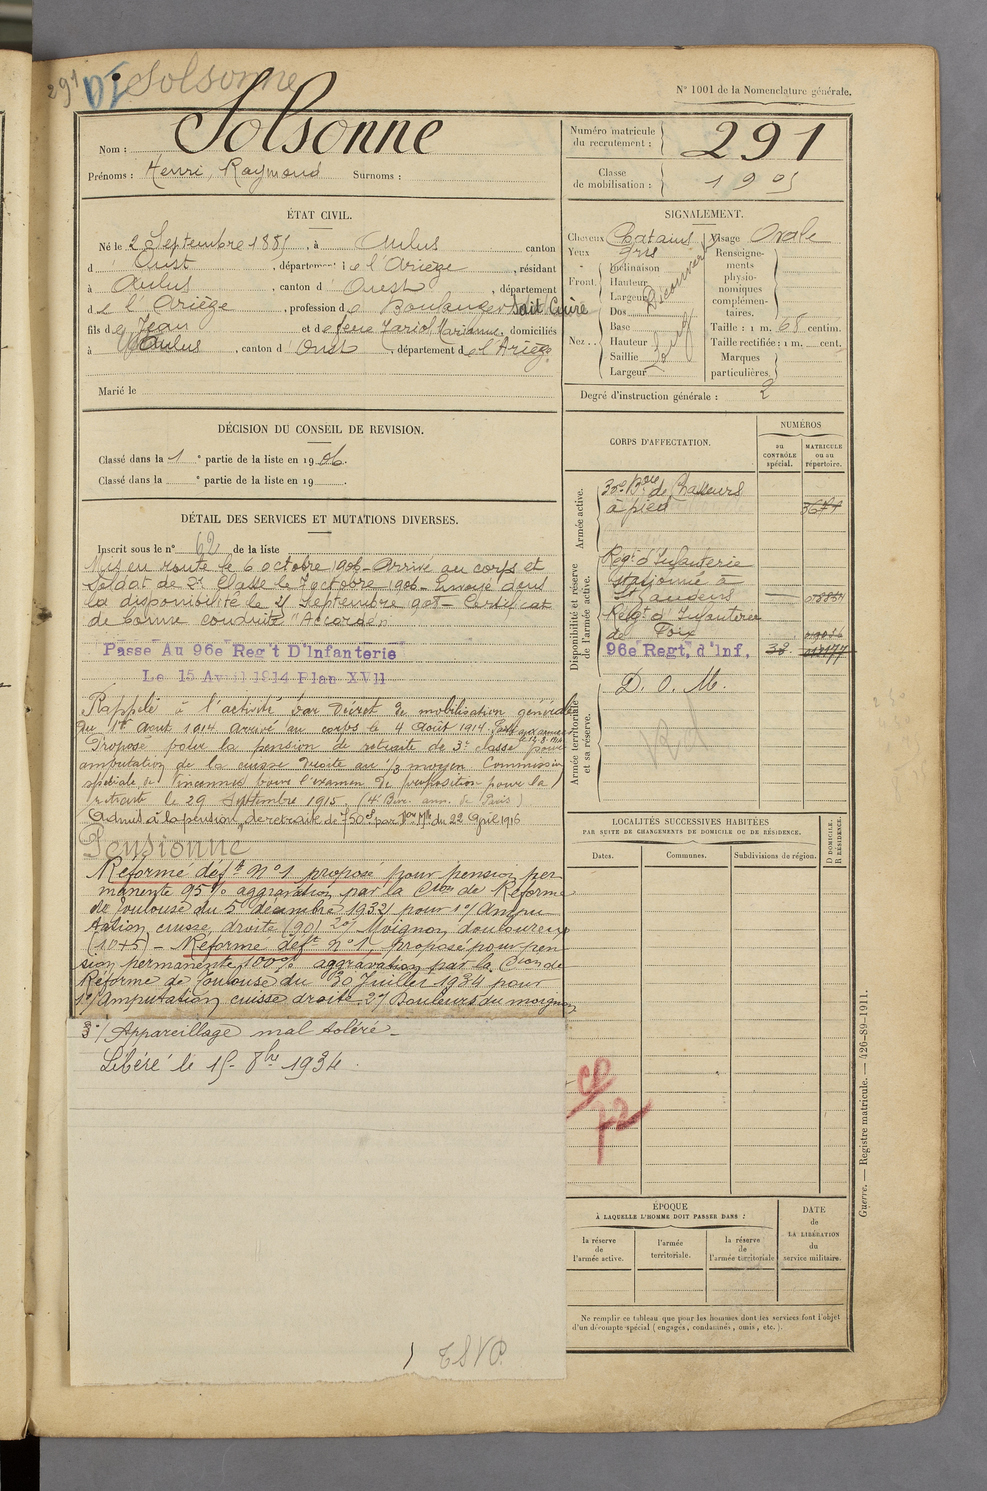 291 Solsonne
N° 1001 de la Nomenclature générale.
Nom : Solsonne
Prénoms : Henri, Raymond Surnoms :
Numéro matricule du recrutement : 291
Classe de mobilisation : 1905
ÉTAT CIVIL.
Né le 2 Septembre 1885, à Aulus canton
d' Oust, département de l'Ariège, résidant
à Aulus, canton d' Oust, département
de l'Ariège, profession de Boulanger Sait Cuire
fils de Jean et de feue Marianne, domiciliés
à Aulus, canton d' Oust, département de l'Ariège.
Marié le
SIGNALEMENT.
Cheveux Chatains Visage Ovale
Yeux gris
Front. Inclinaison
Hauteur
Largeur
Découvert
Nez. Dos
Base
Hauteur
Saillie
Largeur
Long
Renseignements physionomiques complémentaires.
Taille : 1 m. 68 centim.
Taille rectifiée : 1 m. cent.
Marques particulières.
Degré d'instruction générale : 2
DÉCISION DU CONSEIL DE REVISION.
Classé dans la 1e partie de la liste en 1906.
Classé dans la e partie de la liste en 19
DÉTAIL DES SERVICES ET MUTATIONS DIVERSES.
Inscrit sous le n° 62 de la liste
Mis en route le 6 octobre 1906 - Arrivé au corps et
Soldat de 2e Classe le 7 octobre 1906 - Envoyé dans
la disponibilité le Septembre 1908 - Certificat
de bonne conduite "Accordé"
Passe Au 96e Reg't D'Infanterie
Le 15 Avril 1914 Plan XVII
Rappelé à l'activité par Décret de mobilisation générale
du 1er Août 1914 arrivé au corps le 4 Août 1914.
Proposé pour la pension de retraite de 3e classe pour
amputation de la cuisse droite au 1/3 moyen Commission
spéciale de Vincennes pour l'examen de proposition pour la
retraite le 29 Septembre 1915. (4e Bure. ann. de Paris)
Admis à la pension de retraite de 750f par du 22 April 1916
Pensionné
Réformé déft n° 1 proposé pour pension per
manente 95% aggravation par la Cion de Réforme
de Toulouse du 5 décembre 1932 pour 1°/ Ampu
tation cuisse droite (90) 2°/ Moignon douloureux
(10+5) - Réformé déft n° 1, proposé pour pen
sion permanente 100% aggravation par la Cion de
Réforme de Toulouse du 30 Juillet 1934 pour
1°/ Amputation cuisse droite - 2°/ Douleurs du moignon
3°/ Appareillage mal toléré -
Libéré le 15 - 8bre 1934.
TSVP.
CORPS D'AFFECTATION.
NUMÉROS
au CONTRÔLE spécial.
MATRICULE ou au répertoire.
Armée active.
de Chasseurs
à pied
Disponibilité et réserve de l'armée active.
Régt d'Infanterie
stationné à
St Gaudens
Régt d'Infanterie
de Foix
96e Regt, d'Inf.
Armée territoriale et sa réserve.
D. O. M.
LOCALITÉS SUCCESSIVES HABITÉES
PAR SUITE DE CHANGEMENTS DE DOMICILE OU DE RÉSIDENCE.
Dates. Communes. Subdivisions de région.
D DOMICILE.
R RÉSIDENCE.
ÉPOQUE
À LAQUELLE L'HOMME DOIT PASSER DANS :
la réserve de l'armée active.
l'armée territoriale.
la réserve de l'armée territoriale
DATE de LA LIBÉRATION du service militaire.
Ne remplir ce tableau que pour les hommes dont les services font l'objet
d'un décompte spécial (engagés, condamnés, omis, etc.).
Guerre. — Registre matricule. — 426-89-1911.